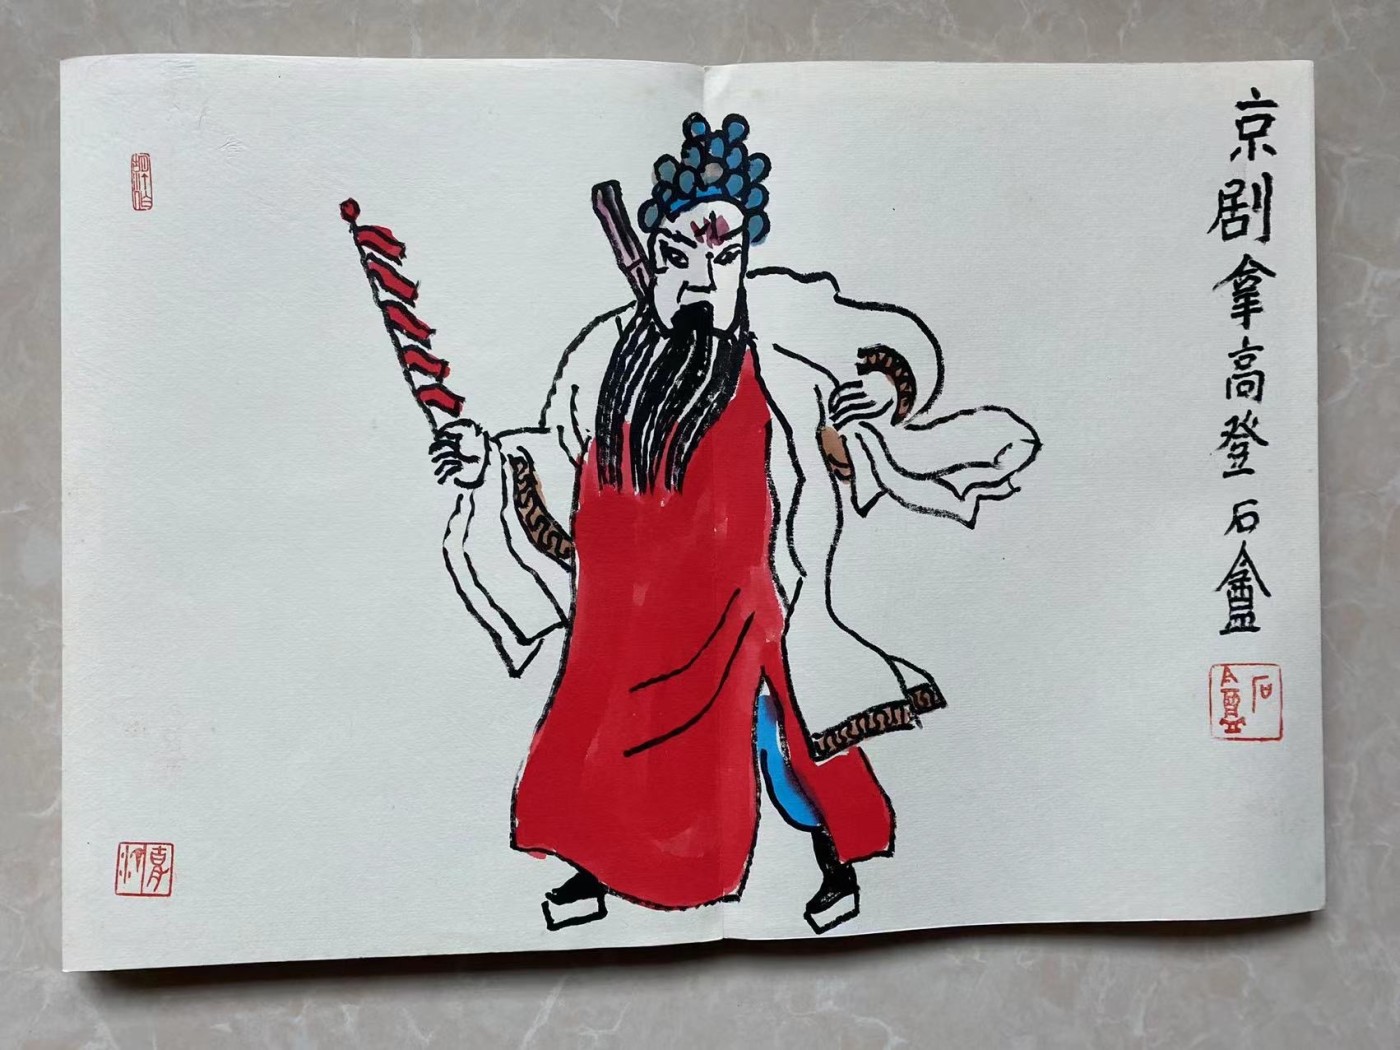 京剧拿高登石盦
石盦